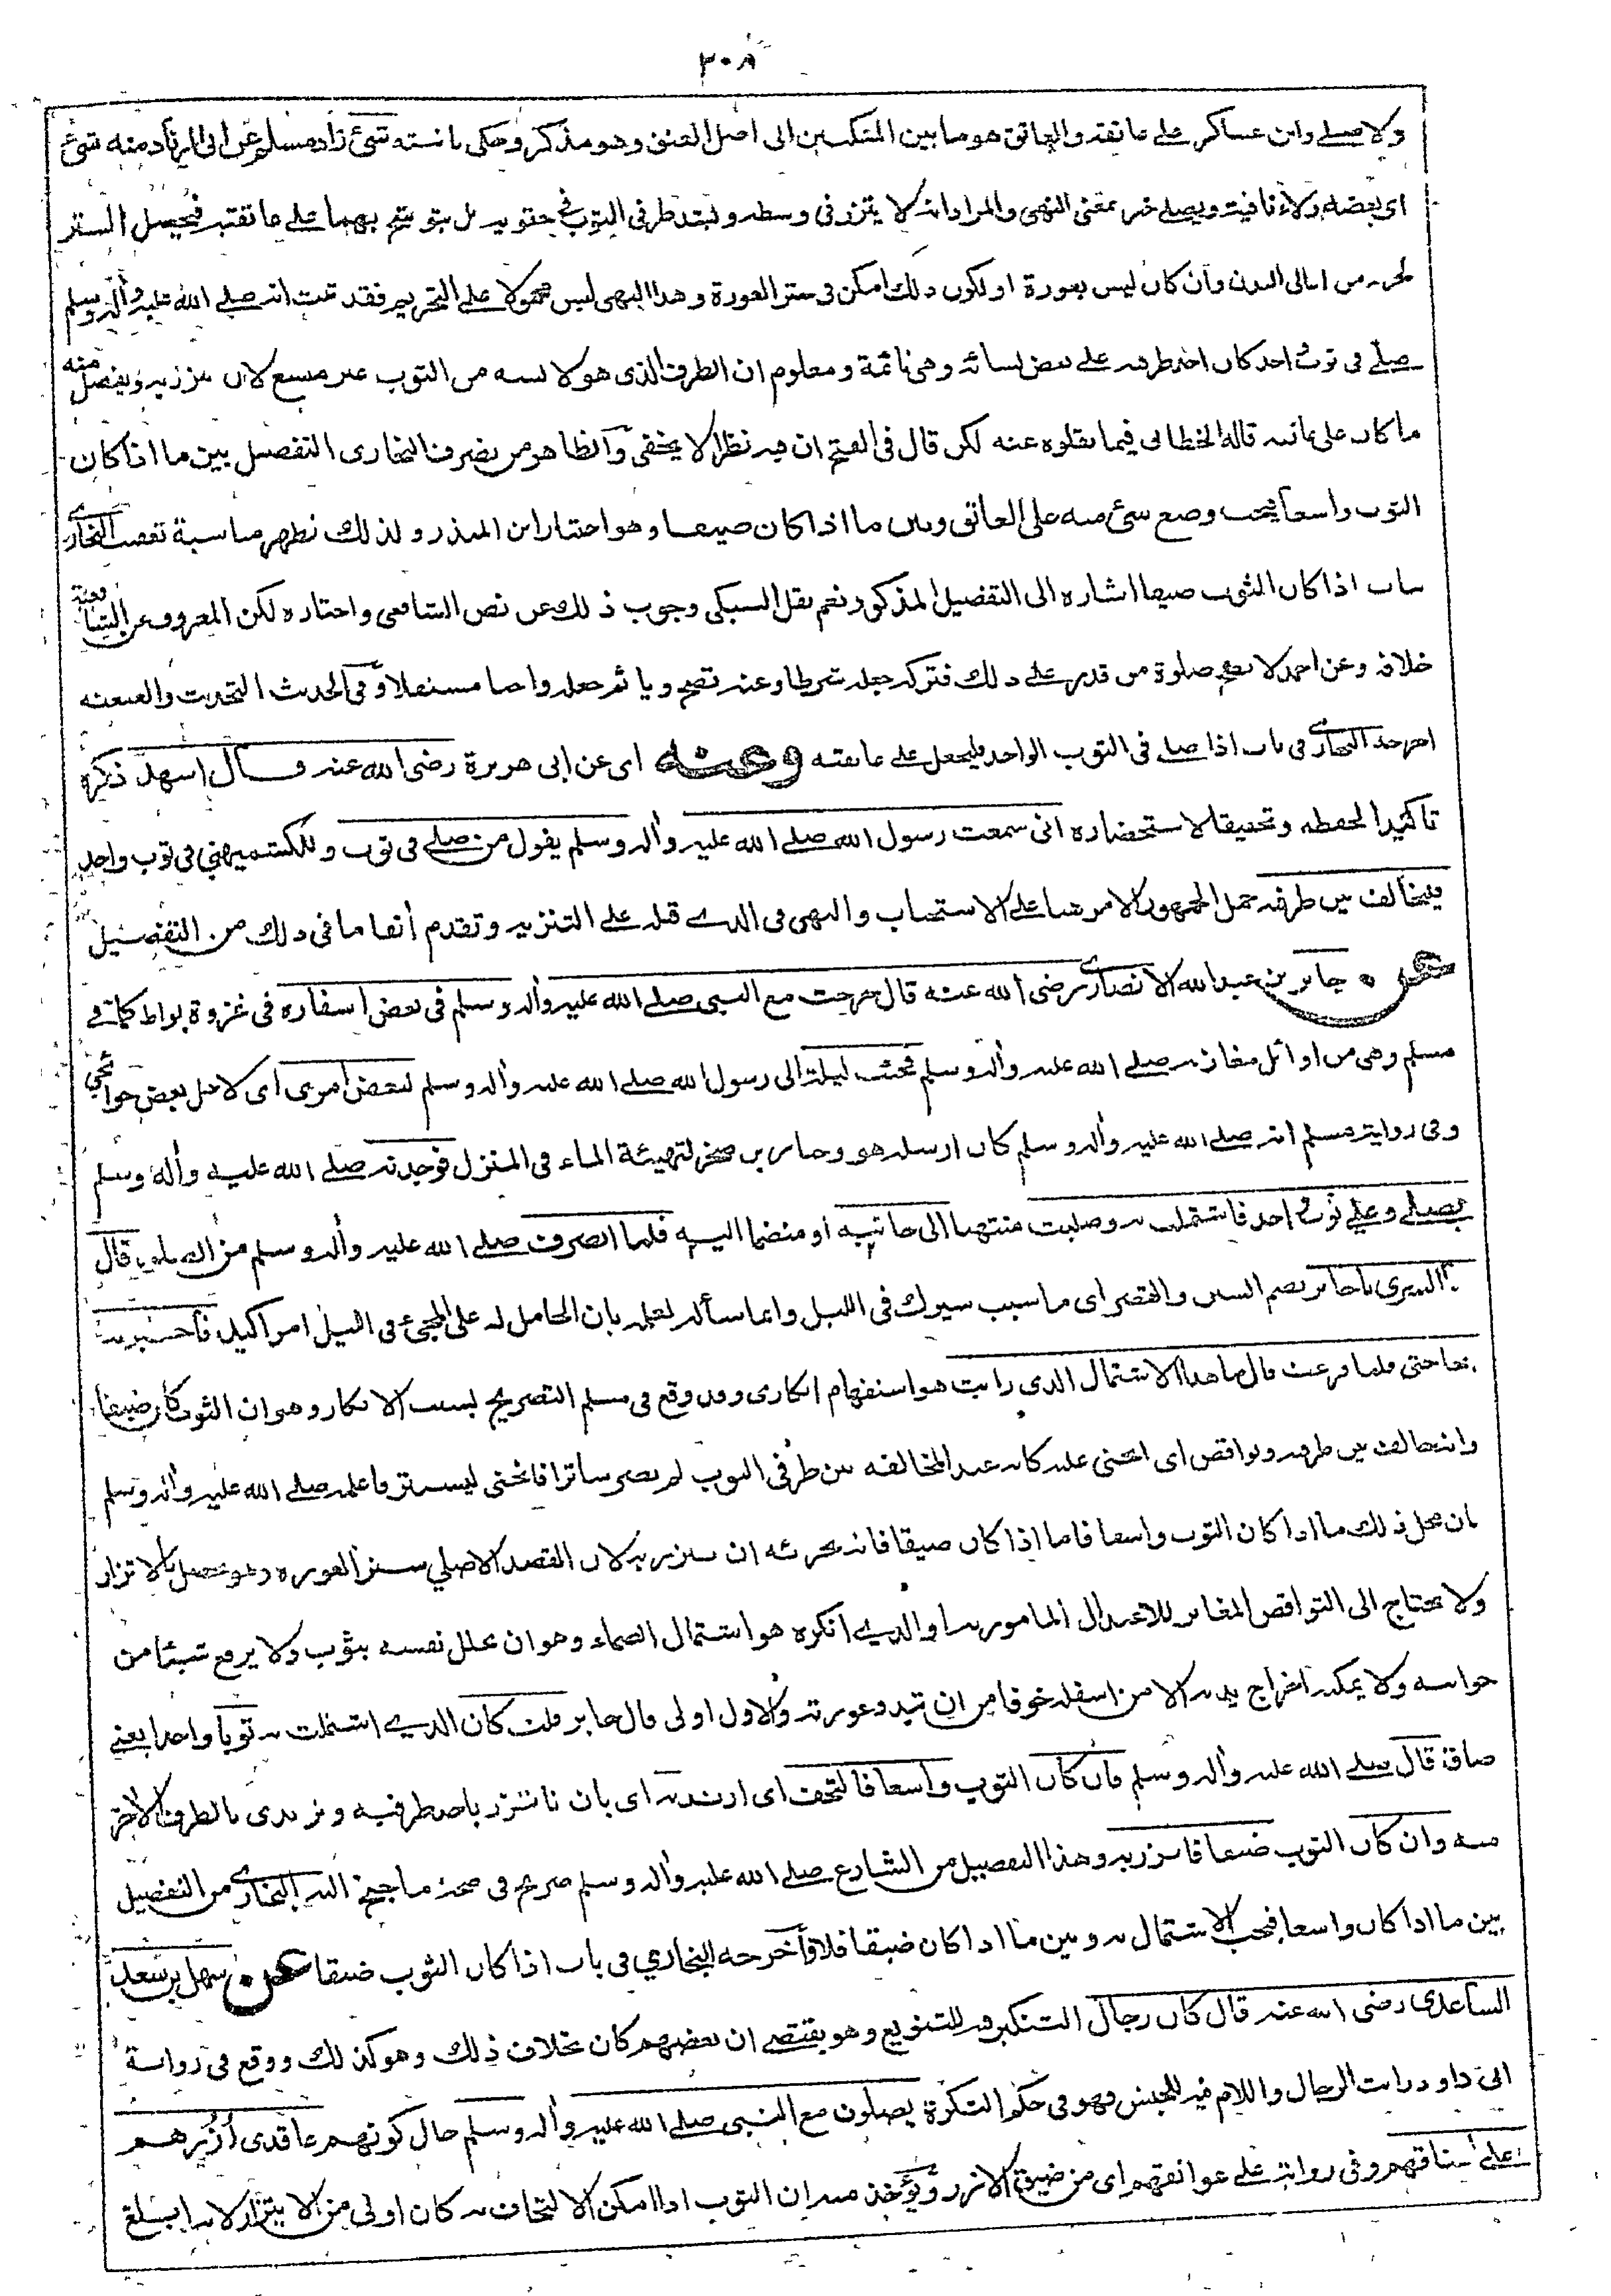 ٣٠٨
ولاصلے وابن عساكر علے عاتقه والعاتق هو ما بين المنكبين الى اصل العنق وهو مذكر وحكى تانيثه شئ زاد مسلم عن ابى الزناد منه شئ
اى بعضه ولاء نافية ويصلے خبر بمعنى النهى والمراد انه لا يتزر فى وسطه ويشد طرفى الثوب فى حقويه بل يتوشح بهما علے عاتقيه فيحصل الستر
لجزء من اعالى البدن وان كان ليس بعورة او لكون ذلك امكن فى ستر العورة وهذا النهى ليس محمولا علے التحريم فقد ثبت انه صلے الله عليه واله وسلم
صلے فى ثوب احد كان احد طرفيه علے بعض نسائه وهى نائمة ومعلوم ان الطرف الذى هو لابسه من الثوب غير متسع لان يتزر به ويفضل منه
ما كان على عاتقه قاله الخطابى فيما نقلوه عنه لكن قال فى الفتح ان فيه نظرا لا يخفى والظاهر من تصرف البخارى التفصيل بين ما اذا كان
الثوب واسعا فيجب وضع شئ منه على العاتق وبين ما اذا كان ضيقا وهو اختيار ابن المنذر ولذلك تظهر مناسبة تعقيب البخارے
باب اذا كان الثوب ضيقا اشارة الى التفصيل المذكور نعم نقل السبكى وجوب ذلك عن نص الشافعى واختاره لكن المعروف عن الشافعية
خلافه وعن احمد لا تصح صلوة من قدر علے ذلك فتركه جعله شرطا وعنه تصح ويأثم جعله واجبا مستقلا وفى الحديث التحديث والعنعنة
اخرجه البخارے فى باب اذا صلے فى الثوب الواحد فليجعل علے عاتقه وعنه اى عن ابى هريرة رضى الله عنه قال اشهد ذكره
تاكيدا لحفظه وتحقيقا لاستحضاره انى سمعت رسول الله صلے الله عليه واله وسلم يقول من صلے فى ثوب وللكشميهنى فى ثوب واحد
فليخالف بين طرفيه حمل الجمهور الامر هنا علے الاستحباب والنهى فى الذے قبله علے التنزيه وتقدم انفا ما فى ذلك من التفصيل
عن جابر بن عبد الله الانصارے رضى الله عنه قال خرجت مع النبى صلے الله عليه واله وسلم فى بعض اسفاره فى غزوة بواط كما فے
مسلم وهى من اوائل مغازيه صلے الله عليه واله وسلم فجئت ليلة الى رسول الله صلے الله عليه واله وسلم لبعض امرى اى لاجل بعض حوائجى
وفى رواية مسلم انه صلے الله عليه واله وسلم كان ارسله هو وجابر بن صخر لتهيئة الماء فى المنزل فوجدته صلے الله عليه واله وسلم
يصلے وعلے ثوب احد فاشتملت به وصليت منتهيا الى جانبه او منضما اليه فلما انصرف صلے الله عليه واله وسلم من الصلوة قال
ما السرى يا جابر بضم السين والقصر اى ما سبب سيرك فى الليل وانما سأله لعلمه بان الحامل له على المجئ فى الليل امر اكيد فأخبرته
بحاجتى فلما فرغت قال ما هذا الاشتمال الذى رايت هو استفهام انكارى وقد وقع فى مسلم التصريح بسبب الانكار وهو ان الثوب كان ضيقا
وانه خالف بين طرفيه وتواقص اى انحنى عليه كانه عند المخالفة بين طرفى الثوب لم يصر ساترا فانحنى ليستتر فاعلمه صلے الله عليه واله وسلم
بان محل ذلك ما اذا كان الثوب واسعا فاما اذا كان ضيقا فانه يجزئه ان يتزر به لان القصد الاصلي ستر العورة وهو يحصل بالاتزار
ولا يحتاج الى التواقص المغاير للاعتدال المامور به او الذے انكره هو اشتمال الصماء وهو ان يجلل نفسه بثوب ولا يرفع شيئا من
جوانبه ولا يمكنه اخراج يديه الا من اسفله خوفا من ان تبدو عورته والاول اولى قال جابر قلت كان الذے اشتملت به ثوبا واحدا يعنے
ضاق قال صلے الله عليه واله وسلم فان كان الثوب واسعا فالتحف اى ارتد به اى بان تاتزر باحد طرفيه وترتدى بالطرف الاخر
منه وان كان الثوب ضيقا فاتزر به وهذا التفصيل من الشارع صلے الله عليه واله وسلم صريح فى صحة ما جنح اليه البخارے من التفصيل
بين ما اذا كان واسعا فيجب الاشتمال به وبين ما اذا كان ضيقا فلا وأخرجه البخاري فى باب اذا كان الثوب ضيقا عن سهل بن سعد
الساعدى رضى الله عنه قال كان رجال التنكير فيه للتنويع وهو يقتضے ان بعضهم كان بخلاف ذلك وهو كذلك ووقع فى رواية
ابى داود رايت الرجال واللام فيه للجنس فهو فى حكم النكرة يصلون مع النبى صلے الله عليه واله وسلم حال كونهم عاقدى ازرهم
علے اعناقهم وفى رواية علے عواتقهم اى من ضيق الازر ويؤخذ منه ان الثوب اذا امكن الالتحاف به كان اولى من الايتزار لانه ابلغ